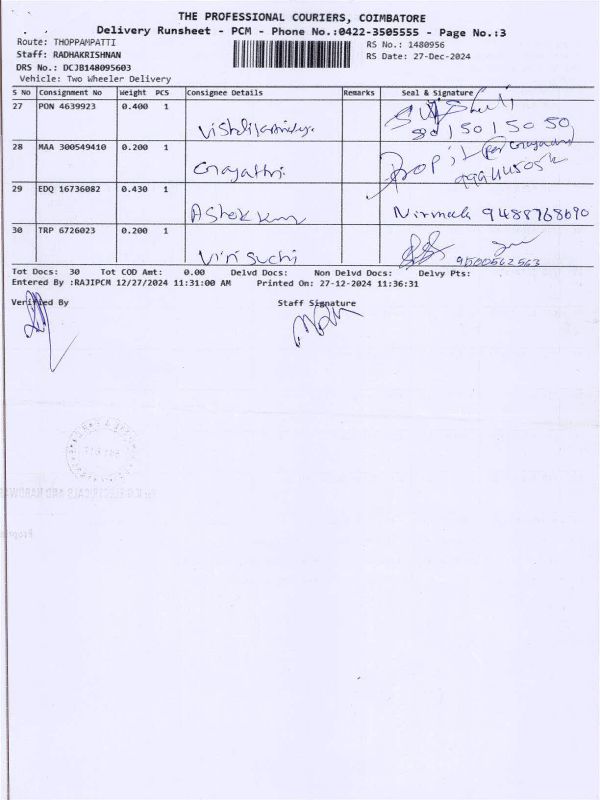 THE PROFESSIONAL COURIERS, COIMBATORE
Delivery Runsheet - PCM - Phone No.:0422-3505555 - Page No.:3
Route: THOPPAMPATTI
RS No.: 1480956
Staff: RADHAKRISHNAN
RS Date: 27-Dec-2024
DRS No.: DCJB148095603
Vehicle: Two Wheeler Delivery
S No Consignment No Weight PCS Consignee Details Remarks Seal & Signature
27 PON 4639923 0.400 1
28 MAA 300549410 0.200 1 Gayathri.
29 EDQ 16736082 0.430 1 Ashok kum Nirmala 9488768690
30 TRP 6726023 0.200 1 Viri suchi 9500562563
Tot Docs: 30 Tot COD Amt: 0.00 Delvd Docs: Non Delvd Docs: Delvy Pts:
Entered By :RAJIPCM 12/27/2024 11:31:00 AM Printed On: 27-12-2024 11:36:31
Verified By Staff Signature